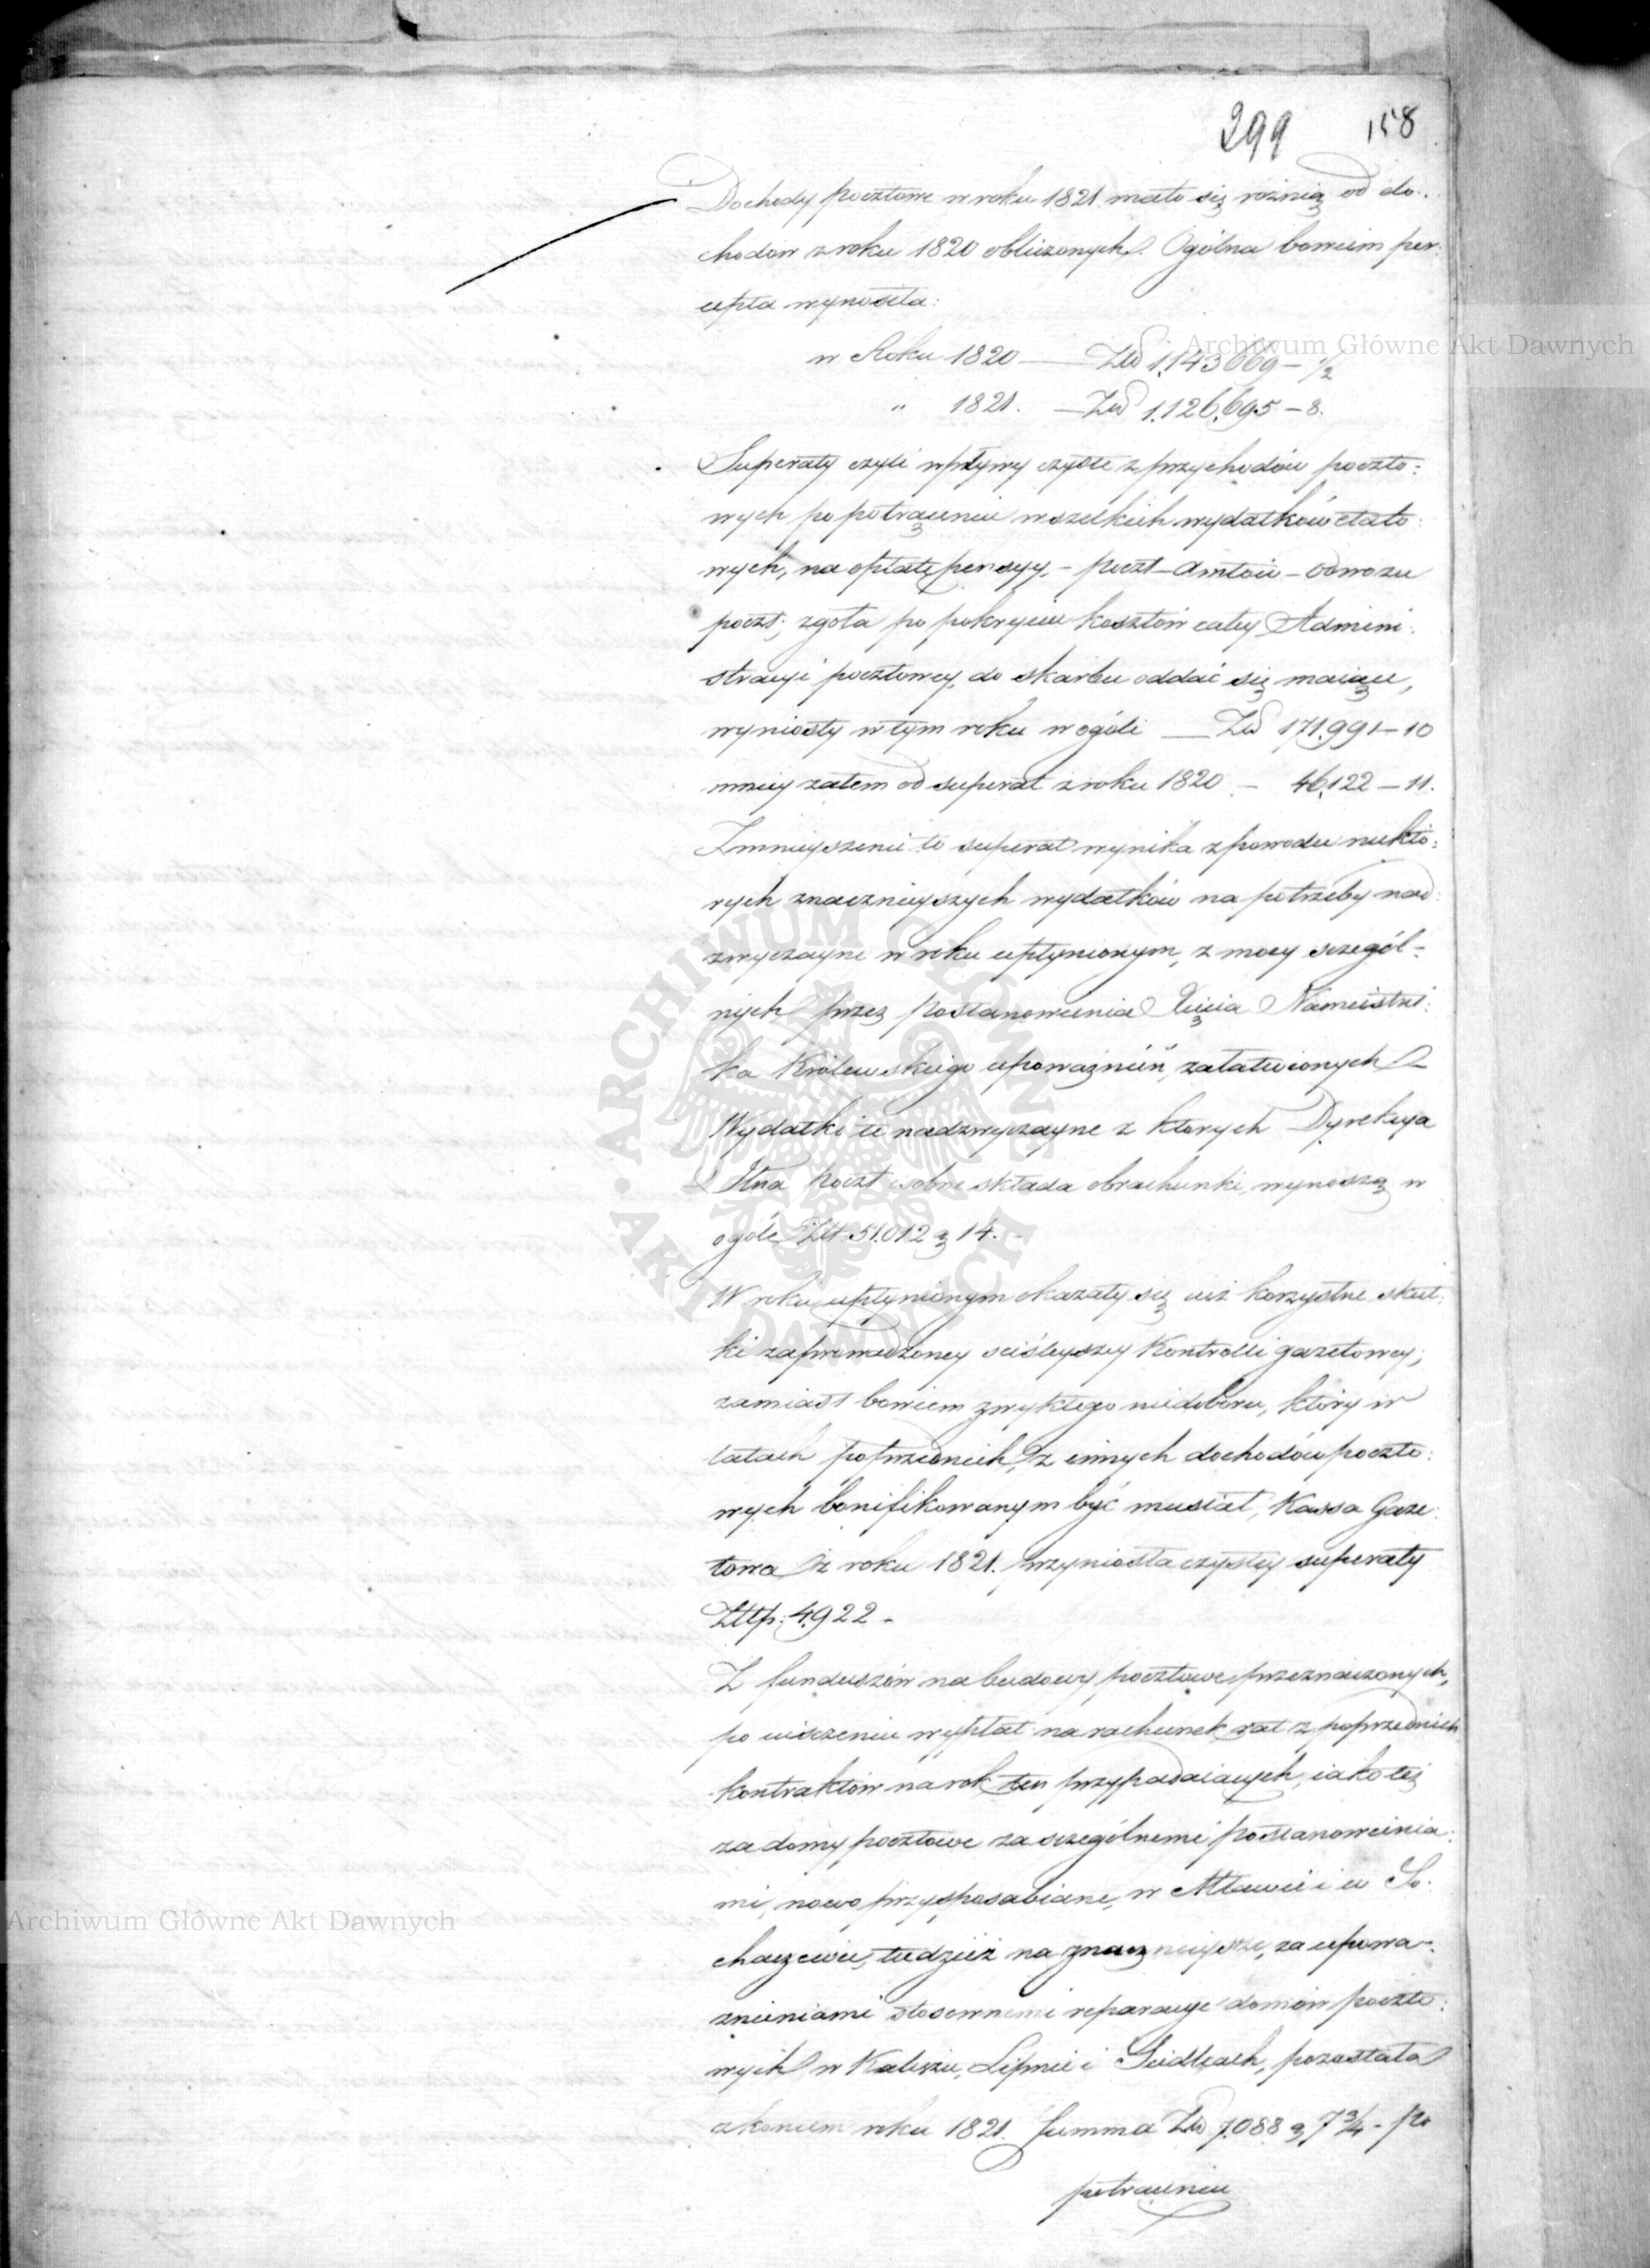 299 158
Dochody pocztowe w roku 1821 mało się rożnią od do-
chodów z roku 1820 obliczonych. Ogólna bowiem per-
cepta wynosiła:
w Roku 1820 — Złł 1,143669 — ½
" 1821. — Złł 1.126,695 — 8.
Superaty czyli wpływy czyste z przychodów poczto:
wych po potrąceniu wszelkich wydatków etato:
wych, na opłatę pensyy, - poczt-amtów - odwozu
poczt; zgoła po pokryciu kosztów całey Admini:
stracyi pocztowey, do skarbu oddać się maiące,
wyniosły w tym roku w ogóle — Złł 171.991 — 10
mniey zatem od superat z roku 1820 — 46,122 — 11.
Zmnieyszenie to superat wynika z powodu niektó:
rych znacznieyszych wydatków na potrzeby nad:
zwyczayne w roku upłynionym, z mocy szczegól-
nych przez postanowienia Xięcia Namiestni:
ka Królewskiego upoważnień, załatwionych
Wydatki te nadzwyczayne z których Dyrekcya
Jlna Poczt osobne składa obrachunki, wynoszą w
ogóle Złł 51.012 g 14.
W roku upłynionym okazały się iuż korzystne skut:
ki zaprowadzoney ściśleyszey Kontrolli gazetowey;
zamiast bowiem zwykłego niedoboru, który w
latach poprzednich, z innych dochodów poczto:
wych bonifikowanym być musiał, Kassa Gaze:
towa z roku 1821. przyniosła czystey superaty
Złłp: 4922 -
Z funduszów na budowy pocztowe przeznaczonych,
po uiszczeniu wypłat na rachunek rat z poprzednich
kontraktów na rok ten przypadaiących, iako też
za domy pocztowe za szczególnemi postanowienia:
mi, nowo przysposabiane, w Mławie i w So:
chaczewie, tudzież na znacznieysze, za upowa-
żnieniami stosownemi reparacye domów poczto:
wych w Kaliszu, Lipnie i Siedlcach, pozostała
z końcem roku 1821. Summa Złł 7.088 g 7¾ - po
potrąceniu
Archiwum Główne Akt Dawnych
Archiwum Główne Akt Dawnych
ARCHIWUM GŁÓWNE AKT DAWNYCH